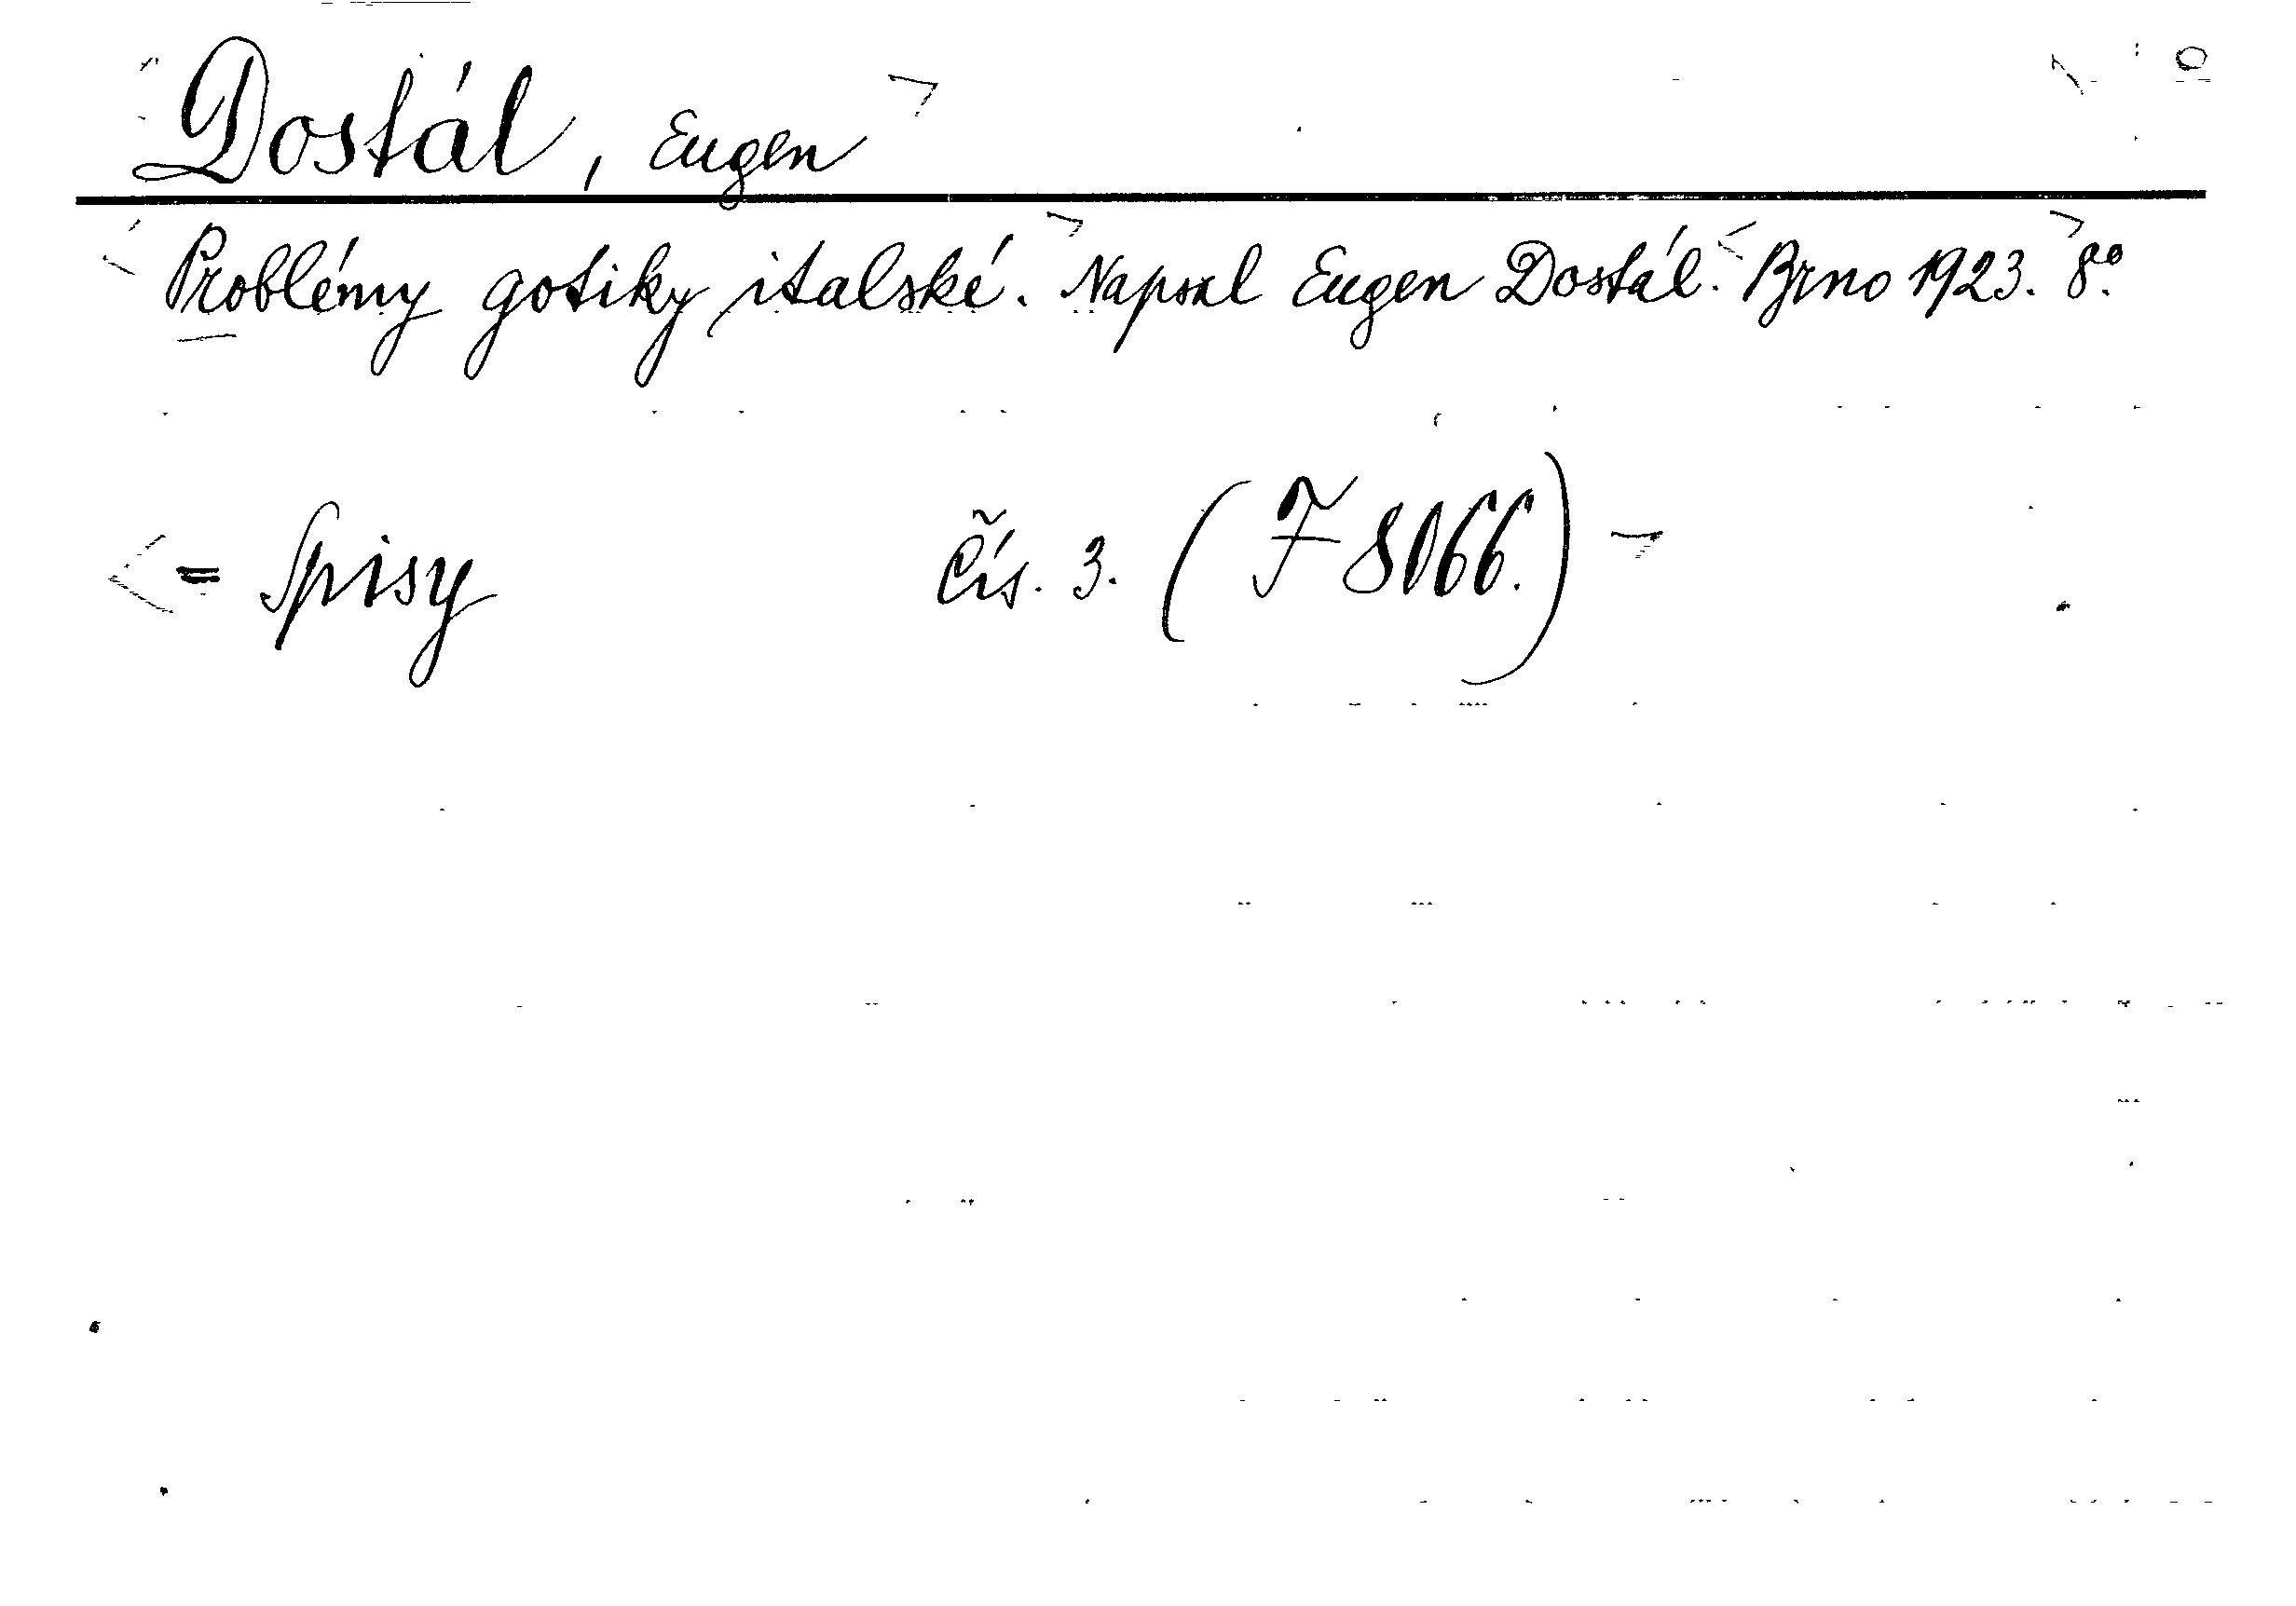 Dostál, Eugen
Problémy gotiky italské. Napsal Eugen Dostál. Brno 1923. 8°.
= Spisy čís. 3. (F 8066.)